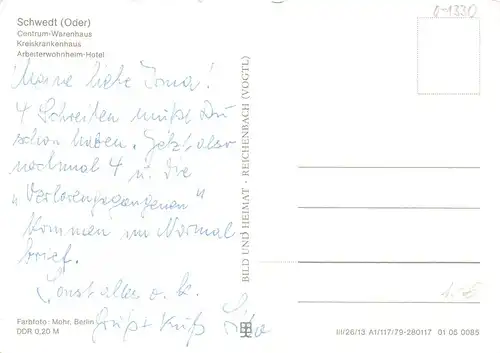 Schwedt (Oder)
Centrum-Warenhaus
Kreiskrankenhaus
Arbeiterwohnheim-Hotel
Meine liebe Irma!
4 Schreiben mußt Du
schon haben. Jetzt also
nochmal 4 u. die
"Verlorengegangenen"
kommen im Normal
brief.
Sonst alles o. k.
Gruß + Kuß
Farbfoto: Mohr, Berlin
DDR 0,20 M
BILD UND HEIMAT · REICHENBACH (VOGTL)
A-1330
1.-€
III/26/13 A1/117/79-280117 01 05 0085